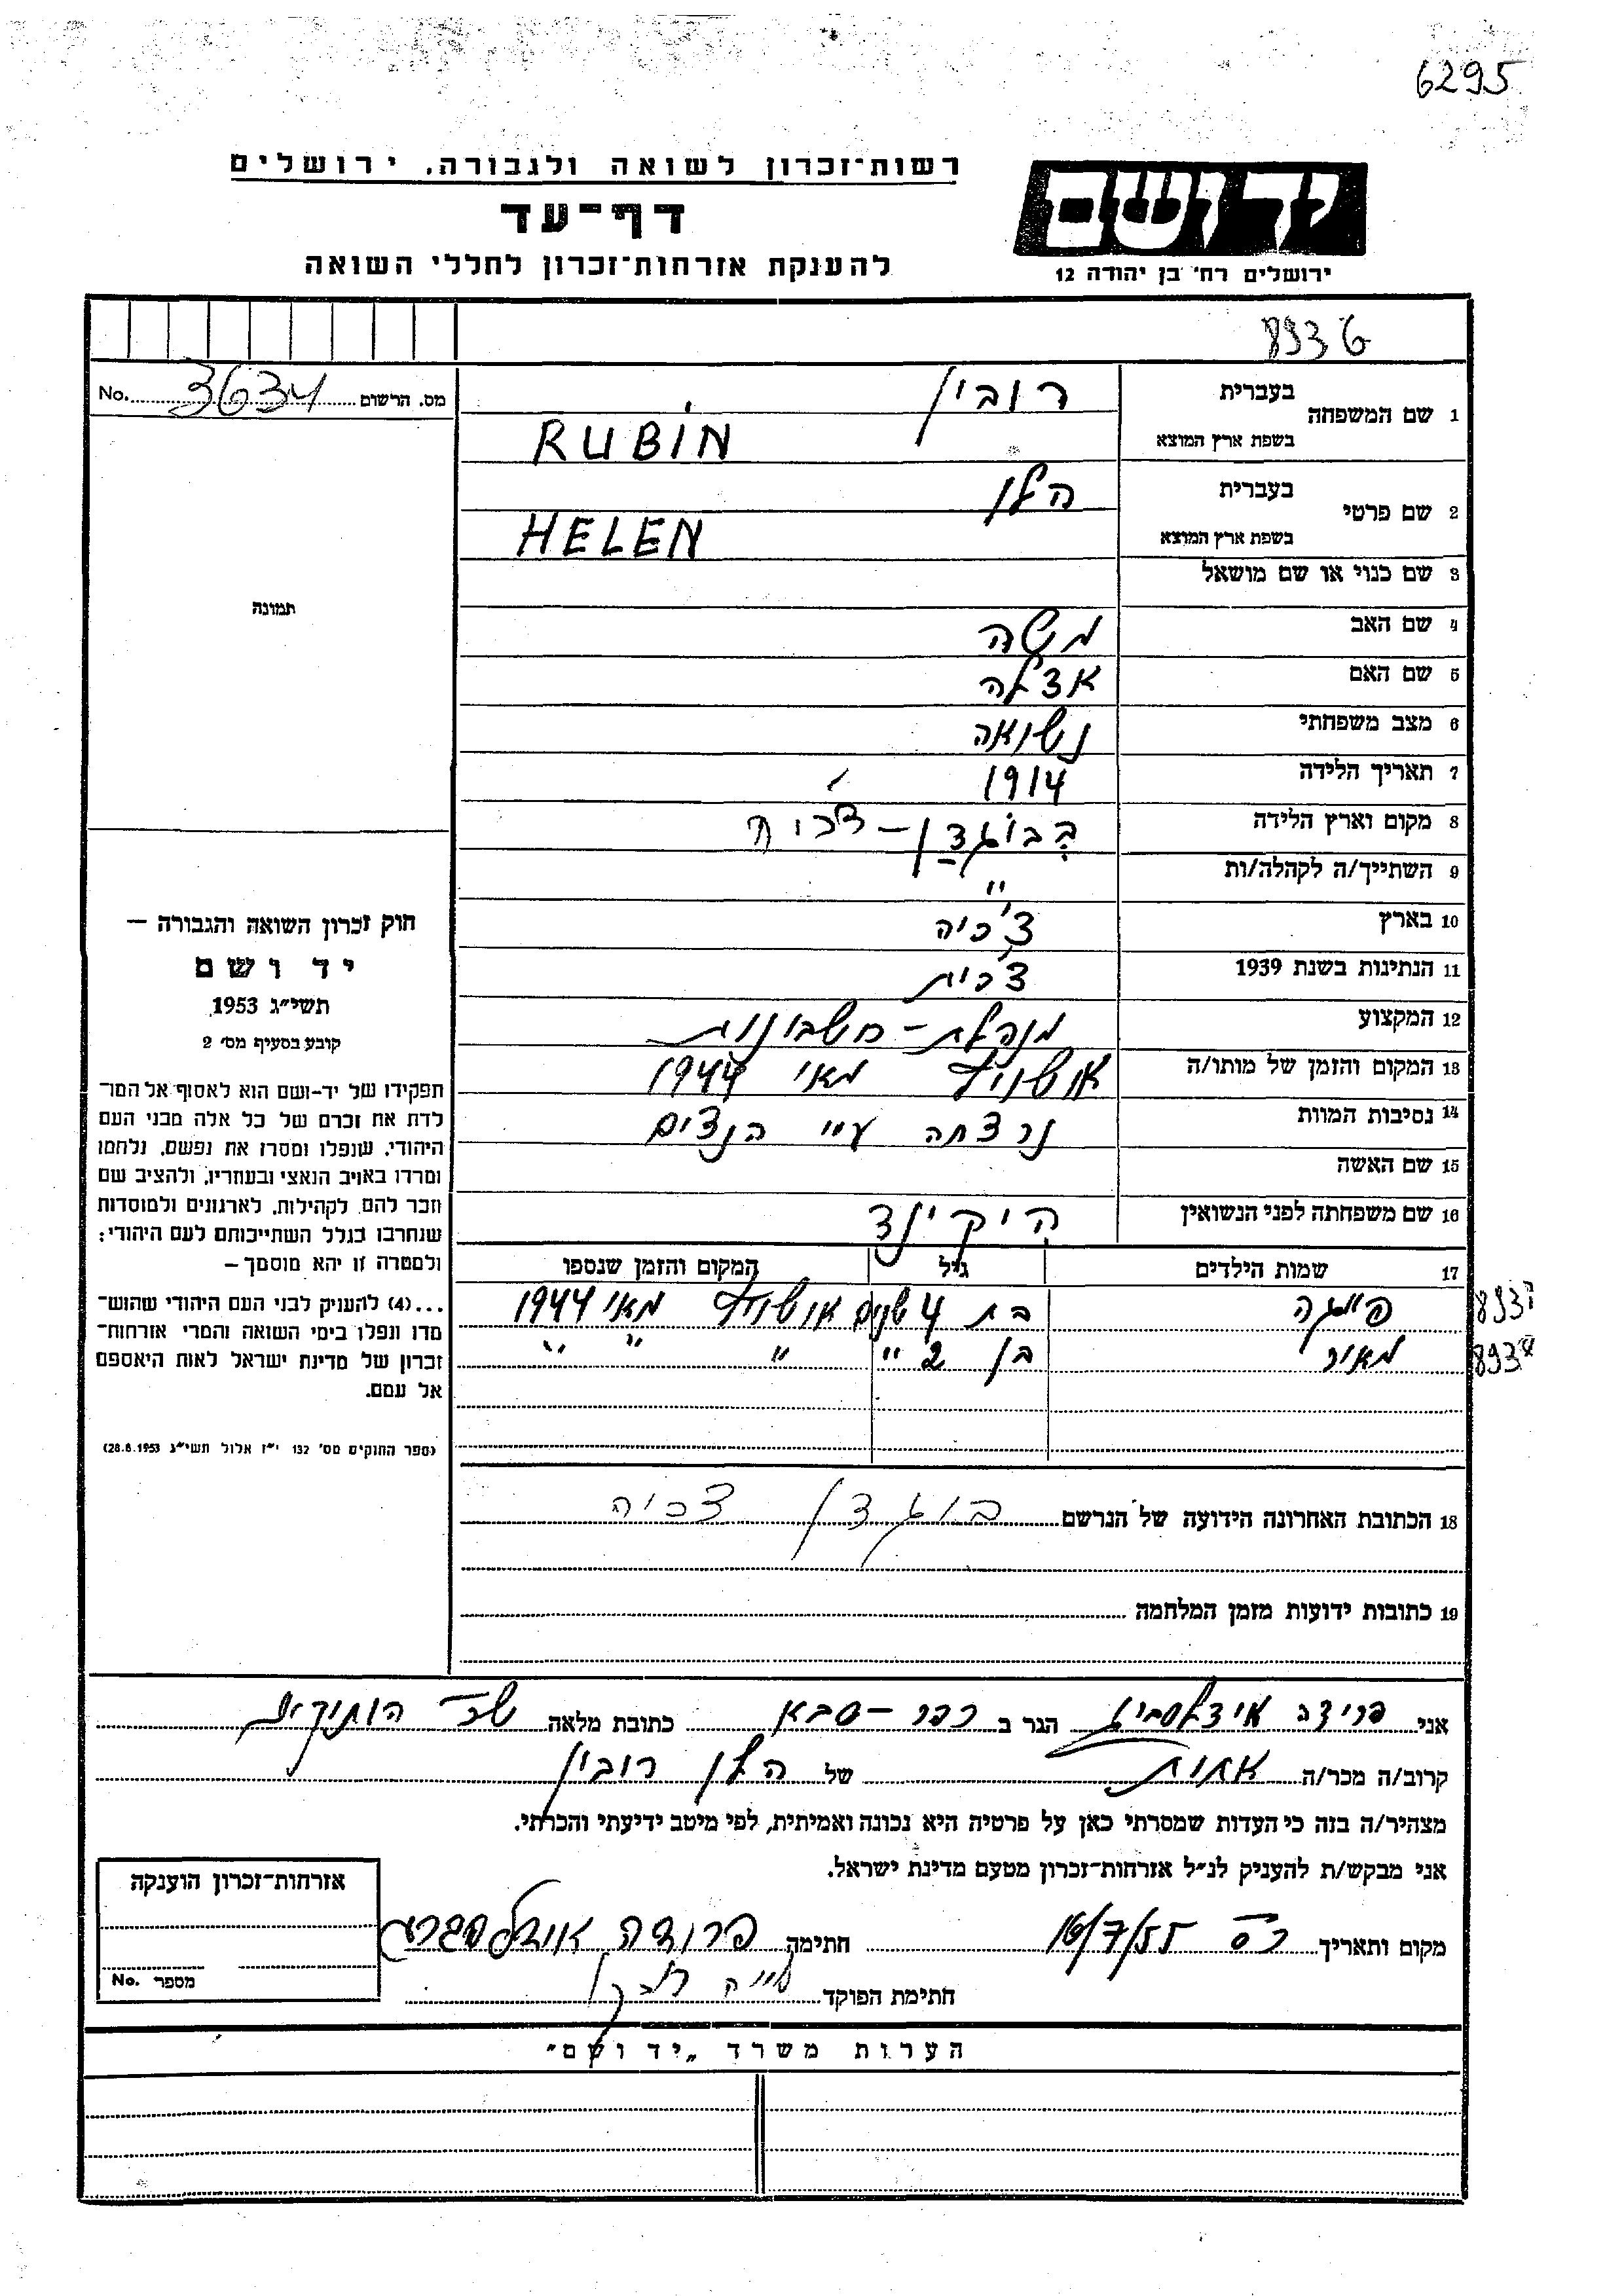 6295
רשות-זכרון לשואה ולגבורה, ירושלים
דף-עד
להענקת אזרחות-זכרון לחללי השואה
יד ושם
ירושלים רח' בן יהודה 12
מס. הרשום 3634 No.
1 שם המשפחה
בעברית רובין
בשפת ארץ המוצא RUBIN
2 שם פרטי
בעברית הלן
בשפת ארץ המוצא HELEN
3 שם כנוי או שם מושאל
4 שם האב משה
5 שם האם
6 מצב משפחתי נשואה
7 תאריך הלידה 1914
8 מקום וארץ הלידה
9 השתייך/ה לקהלה/ות "
10 בארץ צ'כיה
11 הנתינות בשנת 1939 צ'כית
12 המקצוע מנהלת-חשבונות
13 המקום והזמן של מותו/ה אושויץ מאי 1944
14 נסיבות המוות נרצחה ע"י הנצים
15 שם האשה
16 שם משפחתה לפני הנשואין
17 שמות הילדים גיל המקום והזמן שנספו
בת 4 שנים אושויץ מאי 1944
מאיר בן 2 " " " "
18 הכתובת האחרונה הידועה של הנרשם בוגדן צכיה
19 כתובות ידועות מזמן המלחמה
תמונה
חוק זכרון השואה והגבורה –
יד ושם
תשי"ג 1953
קובע בסעיף מס' 2
תפקידו של יד-ושם הוא לאסוף אל המו-
לדת את זכרם של כל אלה מבני העם
היהודי, שנפלו ומסרו את נפשם, נלחמו
ומרדו באויב הנאצי ובעוזריו, ולהציב שם
וזכר להם, לקהילות, לארגונים ולמוסדות
שנחרבו בגלל השתייכותם לעם היהודי;
ולמטרה זו יהא מוסמך –
...(4) להעניק לבני העם היהודי שהוש-
מדו ונפלו בימי השואה והמרי אזרחות-
זכרון של מדינת ישראל לאות היאספם
אל עמם.
(ספר החוקים מס' 132 י"ז אלול תשי"ג 28.8.1953)
אני פרידה הגר ב כפר-סבא כתובת מלאה
קרוב/ה מכר/ה אחות של הלן רובין
מצהיר/ה בזה כי העדות שמסרתי כאן על פרטיה היא נכונה ואמיתית, לפי מיטב ידיעתי והכרתי.
אני מבקש/ת להעניק לנ"ל אזרחות-זכרון מטעם מדינת ישראל.
מקום ותאריך כ"ס 16/7/55 חתימה פרידה
חתימת הפוקד
אזרחות-זכרון הוענקה
מספר No.
הערות משרד "יד ושם"